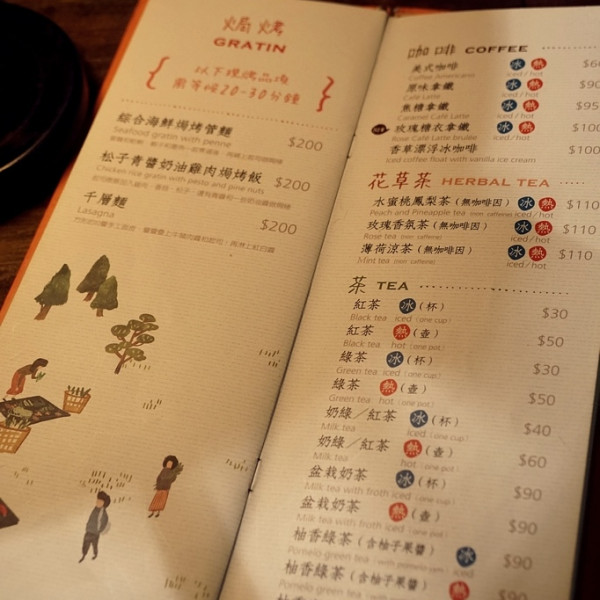 焗烤
GRATIN
以下焗烤品項
需等候20-30分鐘
綜合海鮮焗烤管麵 $200
Seafood gratin with penne
松子青醬奶油雞肉焗烤飯 $200
Chicken rice gratin with pesto and pine nuts
千層麵 $200
Lasagna
咖啡 COFFEE
美式咖啡 冰 熱
Coffee Americano iced / hot
原味拿鐵 冰 熱 $90
Café Latte iced / hot
焦糖拿鐵 冰 熱 $95
Caramel Café Latte iced / hot
玫瑰糖衣拿鐵 冰 熱 $100
Rose Café Latte brulée iced / hot
香草漂浮冰咖啡 $100
Iced coffee float with vanilla ice cream
花草茶 HERBAL TEA
水蜜桃鳳梨茶(無咖啡因) 冰 熱 $110
Peach and Pineapple tea (non caffeine) iced / hot
玫瑰香氛茶(無咖啡因) 冰 熱 $110
Rose tea (non caffeine) iced / hot
薄荷涼茶(無咖啡因) 冰 熱 $110
Mint tea (non caffeine) iced / hot
茶 TEA
紅茶 冰(杯) $30
Black tea iced (one cup)
紅茶 熱(壺) $50
Black tea hot (one pot)
綠茶 冰(杯) $30
Green tea iced (one cup)
綠茶 熱(壺) $50
Green tea hot (one pot)
奶綠/紅茶 冰(杯) $40
Milk tea iced (one cup)
奶綠/紅茶 熱(壺) $60
Milk tea hot (one pot)
盆栽奶茶 冰(杯) $90
Milk tea with froth iced (one cup)
盆栽奶茶 熱(壺) $90
Milk tea with froth iced (one pot)
柚香綠茶(含柚子果醬) 冰 $90
Pomelo green tea (with pomelo jam) iced
柚香綠茶(含柚子果醬) 熱 $90
Pomelo green tea